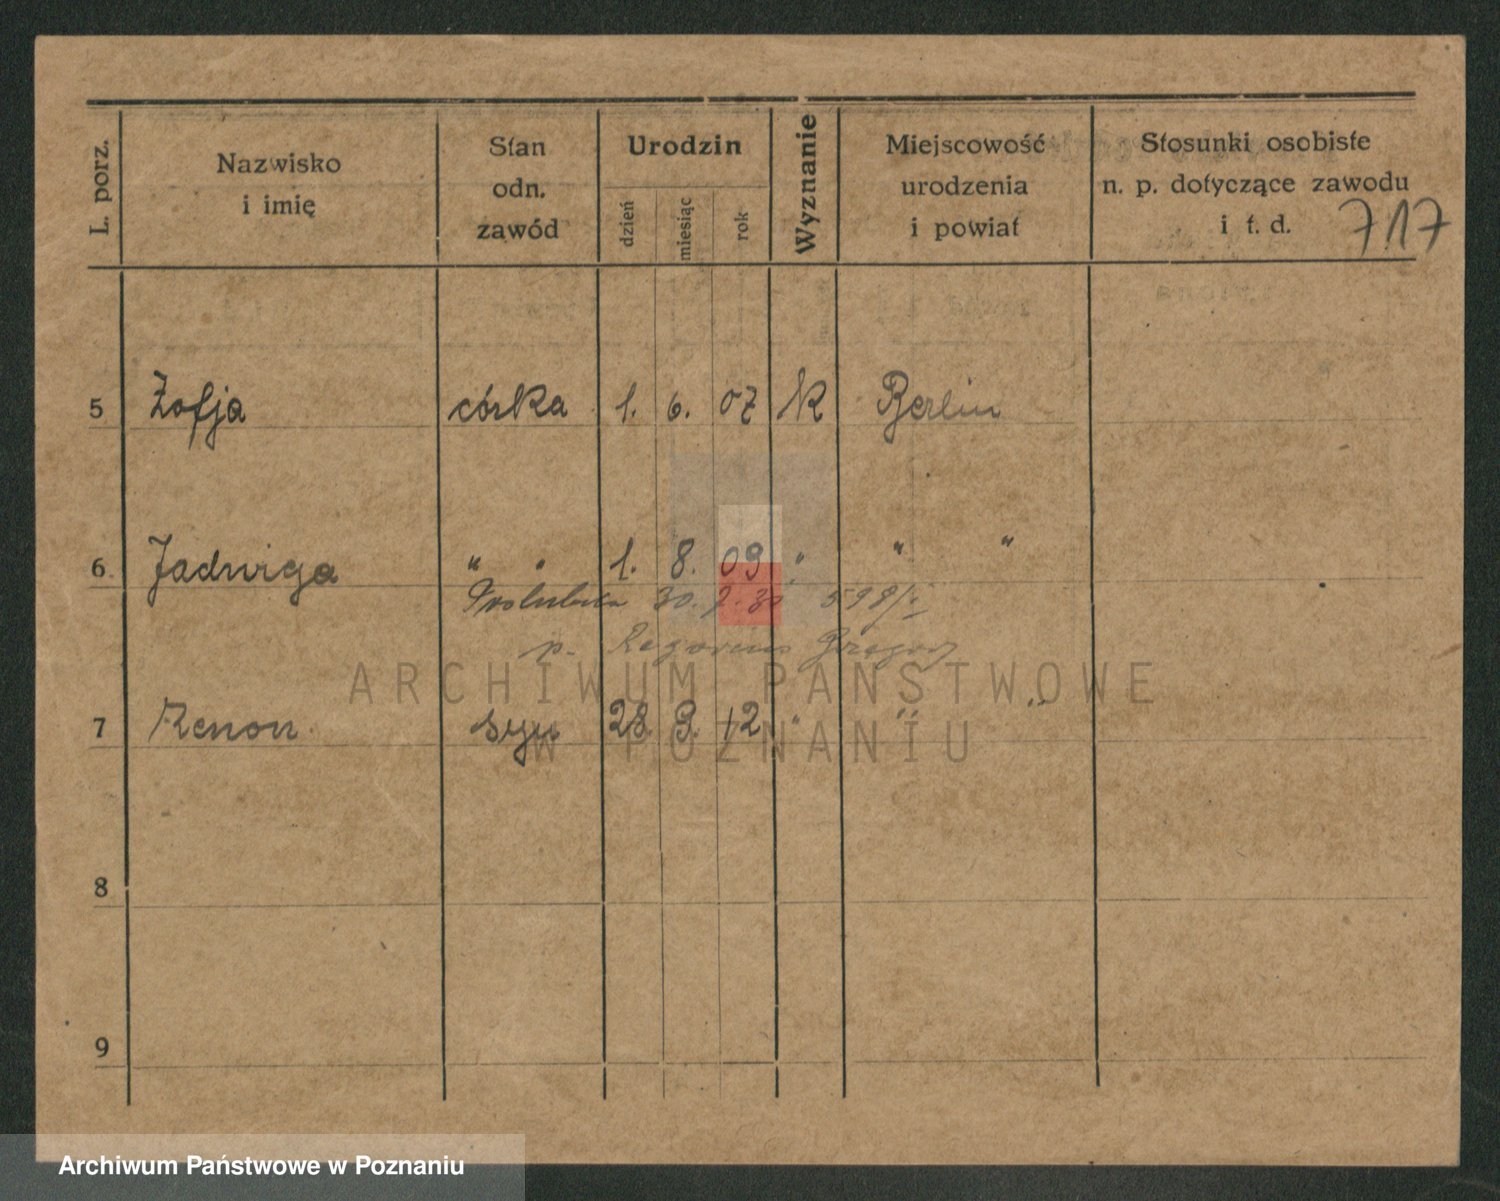 L. porz.
Nazwisko
i imię
Stan
odn.
zawód
Urodzin
dzień
miesiąc
rok
Wyznanie
Miejscowość
urodzenia
i powiat
Stosunki osobiste
n. p. dotyczące zawodu
i t. d.
717
5 Zofja córka 1. 6. 07 K Berlin
6 Jadwiga " " 1. 8. 09 " " "
30. 7. 30 598/I
p. Grzegorz
ARCHIWUM PAŃSTWOWE
7 Zenon syn 28. 9. 12 " " "
W POZNANIU
8
9
Archiwum Państwowe w Poznaniu